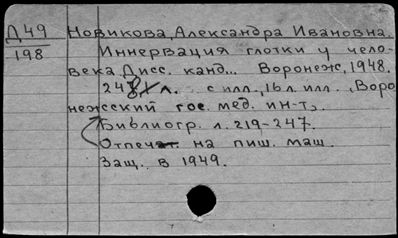 Д49 Новикова, Александра Ивановна.
198 Иннервация глотки у чело-
века. Дисс. канд... Воронеж, 1948.
248 л. с илл., 16 л. илл. (Воро-
нежский гос. мед. ин-т).
Библиогр. л. 219-247.
Отпечат на пиш. маш.
Защ. в 1949.